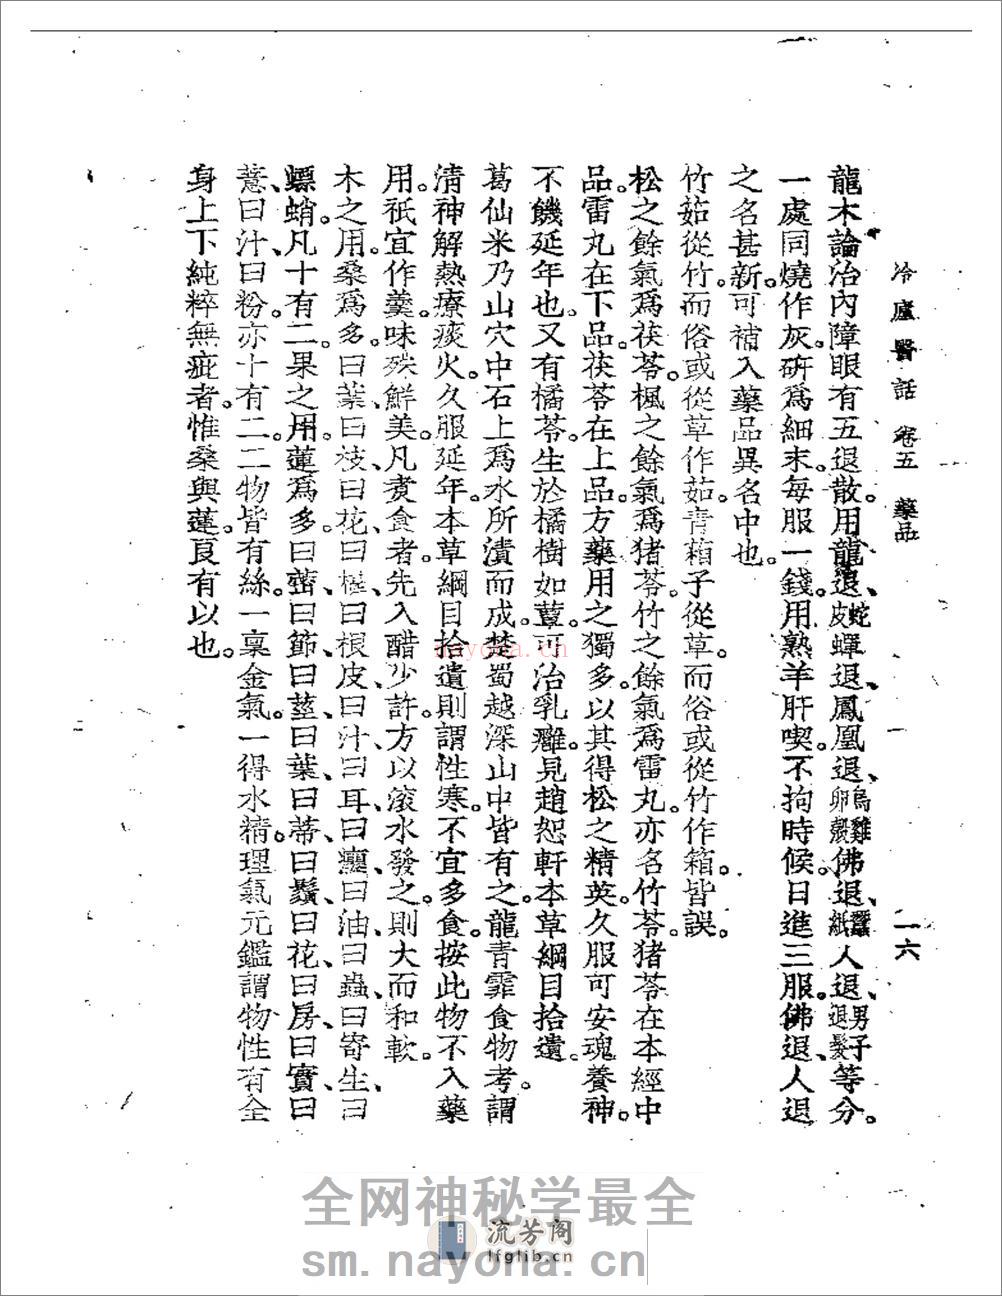 冷廬醫話 卷五 藥品 一六
龍木論治內障眼有五退散。用龍退、蛇皮蟬退、鳳凰退、烏雞卵殼佛退、蠶紙人退、男子退髮等分。
一處同燒作灰。硏爲細末。每服一錢。用熟羊肝喫。不拘時候。日進三服。佛退、人退
之名甚新。可補入藥品異名中也。
竹茹從竹。而俗或從草作茹。青葙子從草。而俗或從竹作箱。皆誤。
松之餘氣爲茯苓。楓之餘氣爲猪苓。竹之餘氣爲雷丸。亦名竹苓。猪苓在本經中
品。雷丸在下品。茯苓在上品。方藥用之獨多。以其得松之精英。久服可安魂養神。
不饑延年也。又有橘苓。生於橘樹如蕈。可治乳癰。見趙恕軒本草綱目拾遺。
葛仙米乃山穴中石上爲水所漬而成。楚蜀越深山中皆有之。龍青霏食物考。謂
清神解熱。療痰火。久服延年。本草綱目拾遺。則謂性寒。不宜多食。按此物不入藥
用。祇宜作羹。味殊鮮美。凡煑食者。先入醋少許、方以滚水發之。則大而和軟。
木之用。桑爲多。曰葉、曰枝、曰花、曰椹、曰根皮、曰汁、曰耳、曰癭、曰油、曰蟲、曰寄生、曰
螵蛸。凡十有二。果之用。蓮爲多。曰蕅、曰節、曰莖、曰葉、曰蒂、曰鬚、曰花、曰房、曰實、曰
薏、曰汁、曰粉。亦十有二。二物皆有絲。一稟金氣。一得水精。理氣元鑑謂物性有全
身上下純粹無疵者。惟桑與蓮。良有以也。
nayona.cn
全网神秘学最全
流芳阁
lfglib.cn
sm.nayona.cn